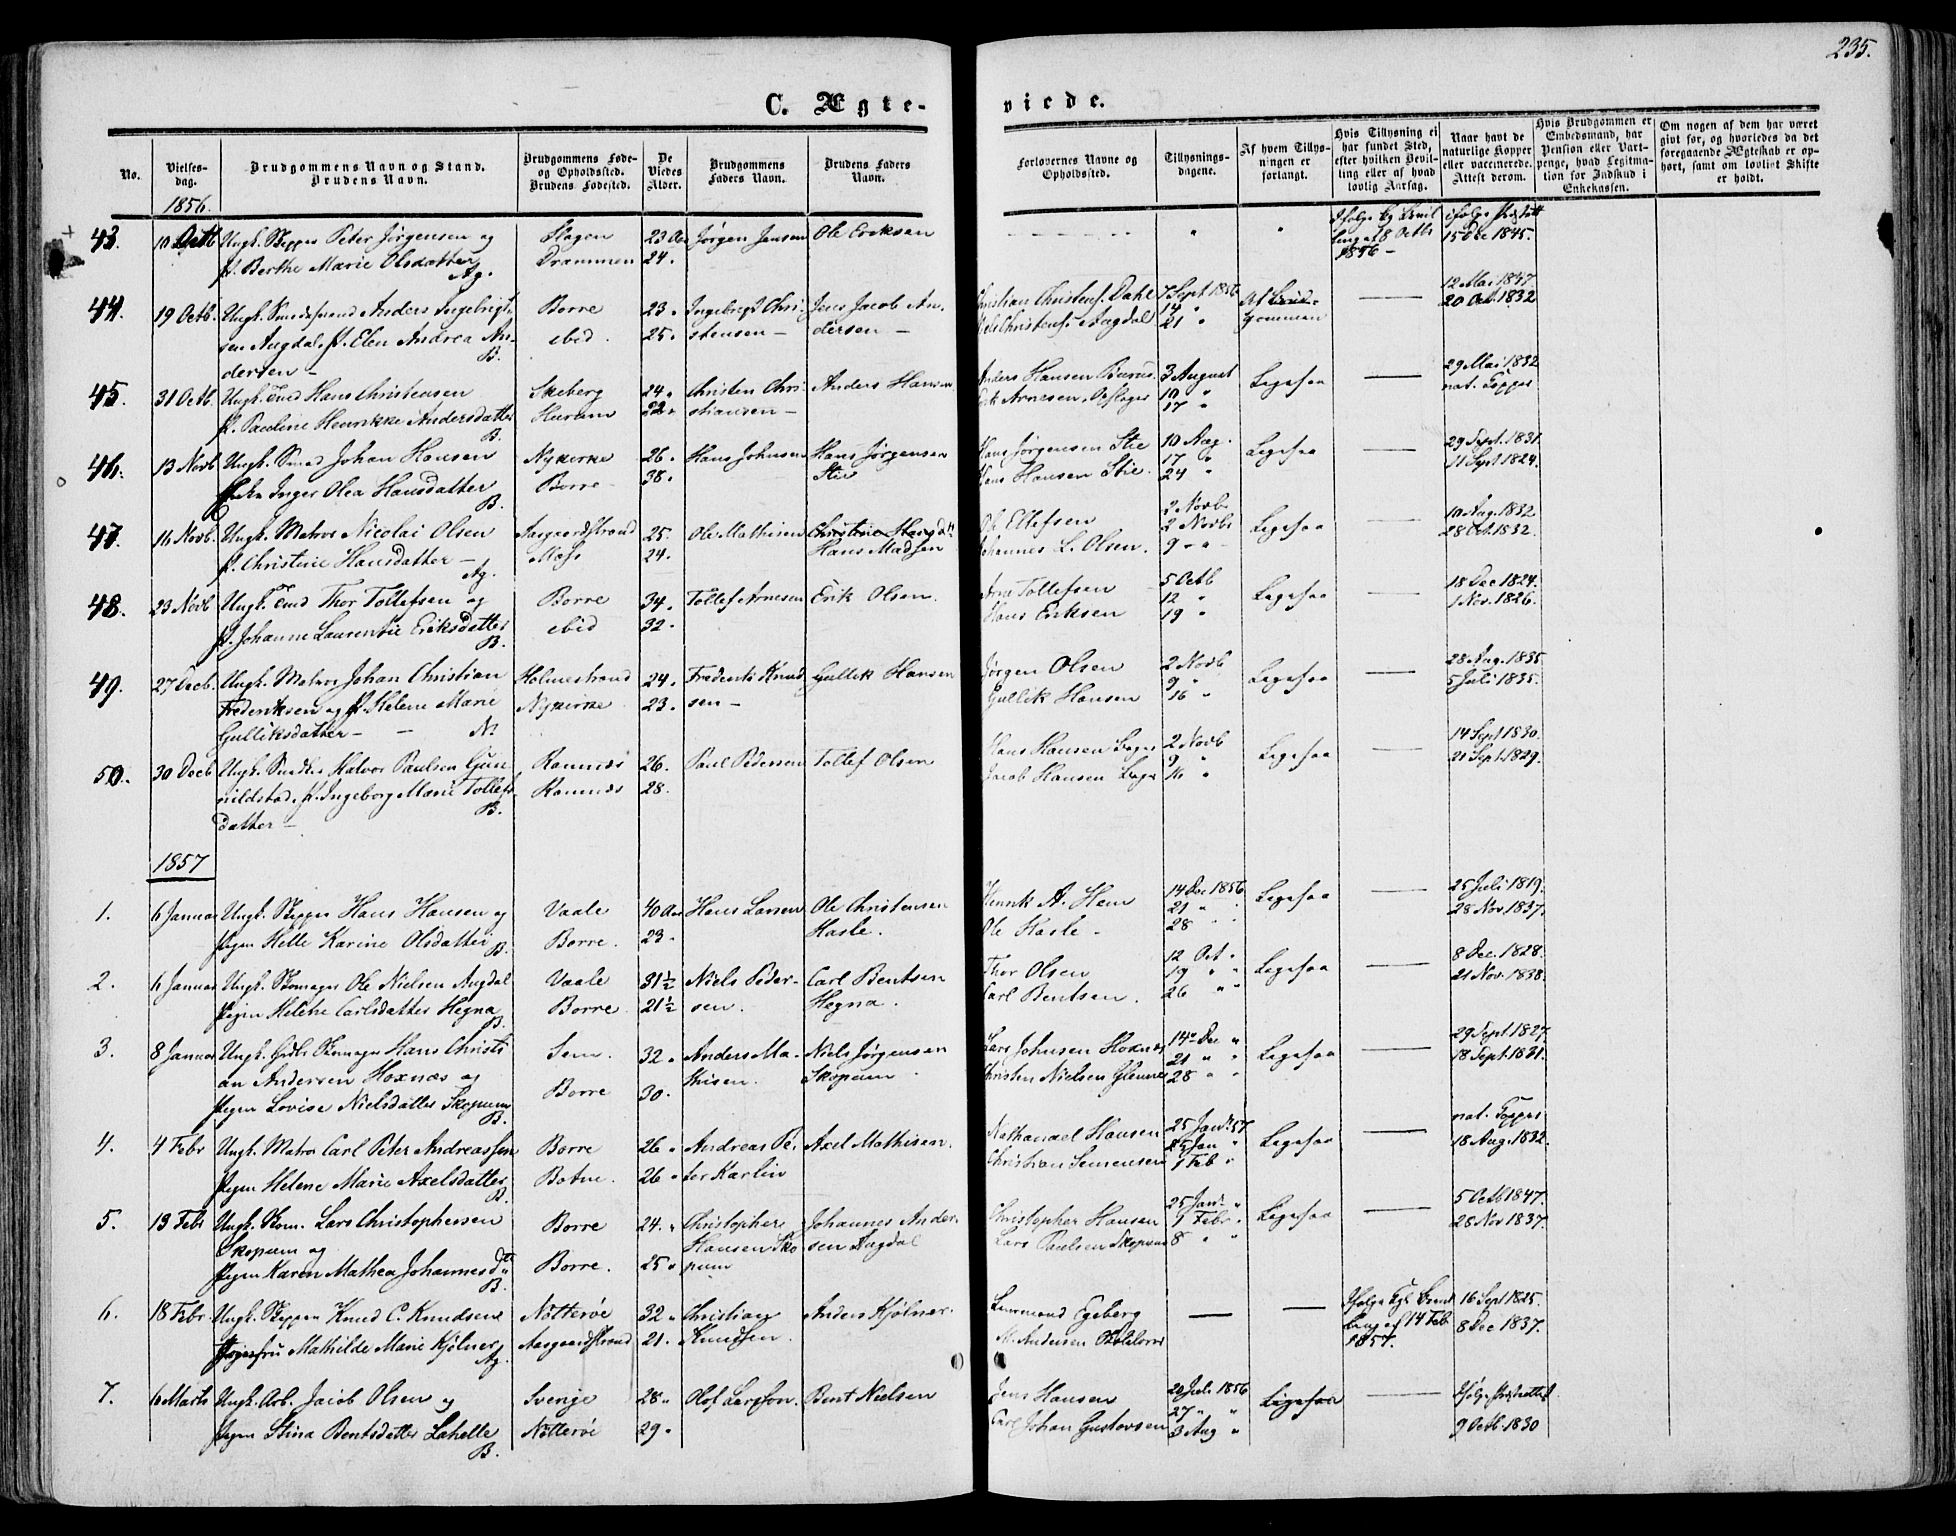 235.
C. Ægte-
viede.
No.
Vielses-
dag.
Brudgommens Navn og Stand.
Brudens Navn.
Brudgommens Føde-
og Opholdssted.
Brudens Fødested.
De
Viedes
Alder.
Brudgommens
Faders Navn.
Brudens Faders
Navn.
Forlovernes Navne og
Opholdssted.
Tillysnings-
dagene.
Af hvem Tillys-
ningen er
forlangt.
Hvis Tillysning ei
har fundet Sted,
efter hvilken Bevil-
ling eller af hvad
lovlig Aarsag.
Naar havt de
naturlige Kopper
eller vaccinerede.
Attest derom.
Hvis Brudgommen er
Embedsmand, har
Pension eller Vart-
penge, hvad Legitima-
tion for Indskud i
Enkekassen.
Om nogen af dem har været
givt før, og hvorledes da det
foregaaende Ægteskab er op-
hørt, samt om lovligt Skifte
er holdt.
1856.
43. 10 Octb Ungk. Skipper Peter Jørgensen og Slagen 23 Jørgen Jensen Ole Eriksen
P. Berthe Marie Olsdatter Drammen 24.
Ag.
18 Octb
1856 –
15 Dec 1845.
44. 19 Octb. Ungk. Anders Ingebrigt- Borre 23 Ingebrigt Chri- Jens Jacob An-
sen Augdal, P. Elen Andrea An- ebid. 25. stensen – dersen –
B.
dersen –
Christian Christens. Dahl 7 Sept 1856 Af Brud-
14 "
Christens. Augdal 21 " gommen
12 Mai 1847
20 Oct. 1832
45. 31 Octb. Ungk. Hans Christensen Skeberg 24 Christen Chri- Anders Hansen
P. Pauline Henrikke Andersdatter Hurum 22 stiansen –
B.
Anders Hansen 3 August Ligesaa
Erik Arnesen 10 "
17 "
29 Mai 1832
nat. Kopper
46. 13 Novb Ungk. Smed Johan Hansen Nykirke 26. Hans Johnsen Hans Jørgensen
Inger Olea Hansdatter Borre – 38. Stie
B.
Hans Jørgensen Stie 10 Aug. Ligesaa
17 "
Hans Hansen Stie. 24 "
29 Sept. 1831.
11 Sept 1824.
47. 16 Novb. Ungk. Matros Nicolai Olsen Aasgaardstrand 25. Ole Mathisen Christine Hansd
P. Christine Hansdatter – Moss 24. Hans Madsen
Ag.
Ole Ellefsen 2 Novb Ligesaa
2 Novb
Johannes L. Olsen. 9
10 Aug. 1832
28 Oct. 1832.
48. 23 Novb Ungk. Thor Tollefsen og Borre 34. Tollef Arnesen Erik Olsen.
P. Johanne Laurentie Eriksdatter ebid 32.
B.
Arne Tollefsen 5 Octb Ligesaa
12 "
Hans Eriksen 19 "
18 Dec 1824.
1 Nov. 1826.
49. 27 Decb. Ungk. Matros Johan Christian Holmestrand 24. Frederik Knud- Gullik Hansen
Frederiksen og P. Helene Marie Nykirke 23. sen –
Gulliksdatter – N
Jørgen Olsen 2 Novb Ligesaa
9 "
Gullik Hansen 16 "
28 Aug. 1835.
5 Juli 1835.
50. 30 Decb Ungk. Snedker Halvor Paulsen Gun- Ramnæs 26. Paul Pedersen Tollef Olsen
nildstad, P. Ingeborg Marie Tollefs- Ramnæs 28.
B.
datter –
Hans Hansen 2 Novb Ligesaa
9 "
Jacob Hansen 16 "
14 Sept 1830.
21 Sept. 1829.
1857
1. 6 Januar Ungk. Skipper Hans Hansen og Vaale 40 Hans Larsen Ole Christensen
Pigen Helle Karine Olsdatter Borre. 23. Hasle.
B.
Henrik A. Hem 14 Dec 1856 Ligesaa
21 "
Ole Hasle – 28
25 Juli 1819.
28 Nov. 1837.
2. 6 Januar Ungk. Ole Nielsen Augdal Vaale 31½ Niels Peder- Carl Bentsen
Pigen Helene Carlsdatter Hegna Borre 21½ sen. Hegna.
B.
Thor Olsen 12 Oct. Ligesaa
19 " "
Carl Bentsen. 26 " "
8 Dec. 1828.
21 Nov. 1838.
3. 8 Januar Ungk. Hans Christi- Sem 32 Anders Ma- Niels Jørgensen
an Andersen Hoxnæs og Borre 30. thisen. Skopum.
Pigen Lovise Nielsdatter Skopum
B.
Lars Johnsen Hoxnæs 14 Dec " Ligesaa
21 " "
Christen Nielsen Glenne 28 " "
29 Sept 1827.
18 Sept. 1831.
4. 4 Febr Ungk. Matros Carl Peter Andreassen Borre 26 Andreas Pe- Axel Mathisen.
Pigen Helene Marie Axelsdatter Botne. 26 ter Karlin
B.
Nathanael Hansen 25 Jan. 57. Ligesaa
25 Jan "
Christian Sørensen 1 Feb "
nat. Kopper
18 Aug. 1832.
5. 13 Febr Ungk. Lars Christophersen Borre 24. Christopher Johannes Ander-
Skopum og Hansen Sko sen Augdal
Pigen Karen Mathea Johannesd Borre. 25 pum
B.
Christopher Hansen 25 Jan. " Ligesaa
1 Febr.
Lars Paulsen Skopum 8 " "
5 Octb 1847.
28 Nov 1837.
6. 18 Febr. Ungk. Skipper Knud C. Knudsen Nøtterøe 32 Christian Anders Kjølner.
Jomfru Mathilde Marie Kjølner Aasgaardstrand 21. Knudsen.
Ag.
Egeberg
Andersen
Ifølge Kgl. Bevil
ling af 14 Feb
1857.
16 Sept 1825.
8 Dec 1837.
7. 6 Marts Ungk. Arb. Jacob Olsen og Sverige 28 Olof Larsson. Bent Nielsen
Pigen Stina Bentsdatter Lahelle Nøtterøe 29.
B.
Jens Hansen 20 Juli 1856 Ligesaa
27 " "
Carl Johan Gustavsen 3 Aug "
9 Octb. 1830